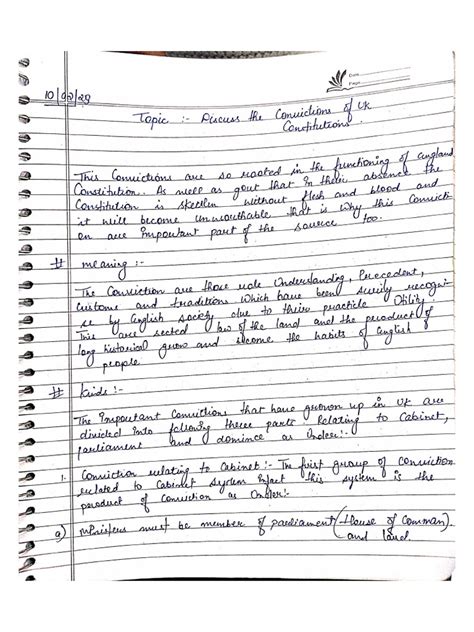 Date
Page
10/02/23
Topic :- Discuss the Convictions of UK
Constitutions.
This Convictions are so rooted in the functioning of england
Constitution. As well as gout that in their absence the
Constitution is skeltlen without flesh and blood and
it will become unworthable that is why this Convicti
on are important part of the source too.
# meaning :-
The Conviction are those rule understanding, Precedent,
custome and traditions which have been recogni-
se by English society due to their practicle utility
This are sected law of the land and the product of
long historical grow and income the habits of English
people
# kinds :-
The important Convictions that have grown up in UK are
divided into following three parts Relating to Cabinet,
parliament and domince as Under:-
1. Conviction relating to Cabinet:- The first group of Conviction
related to Cabinet System infact this system is the
product of Conviction as Under:-
a) ministers must be member of parliament (House of Comman)
and land.